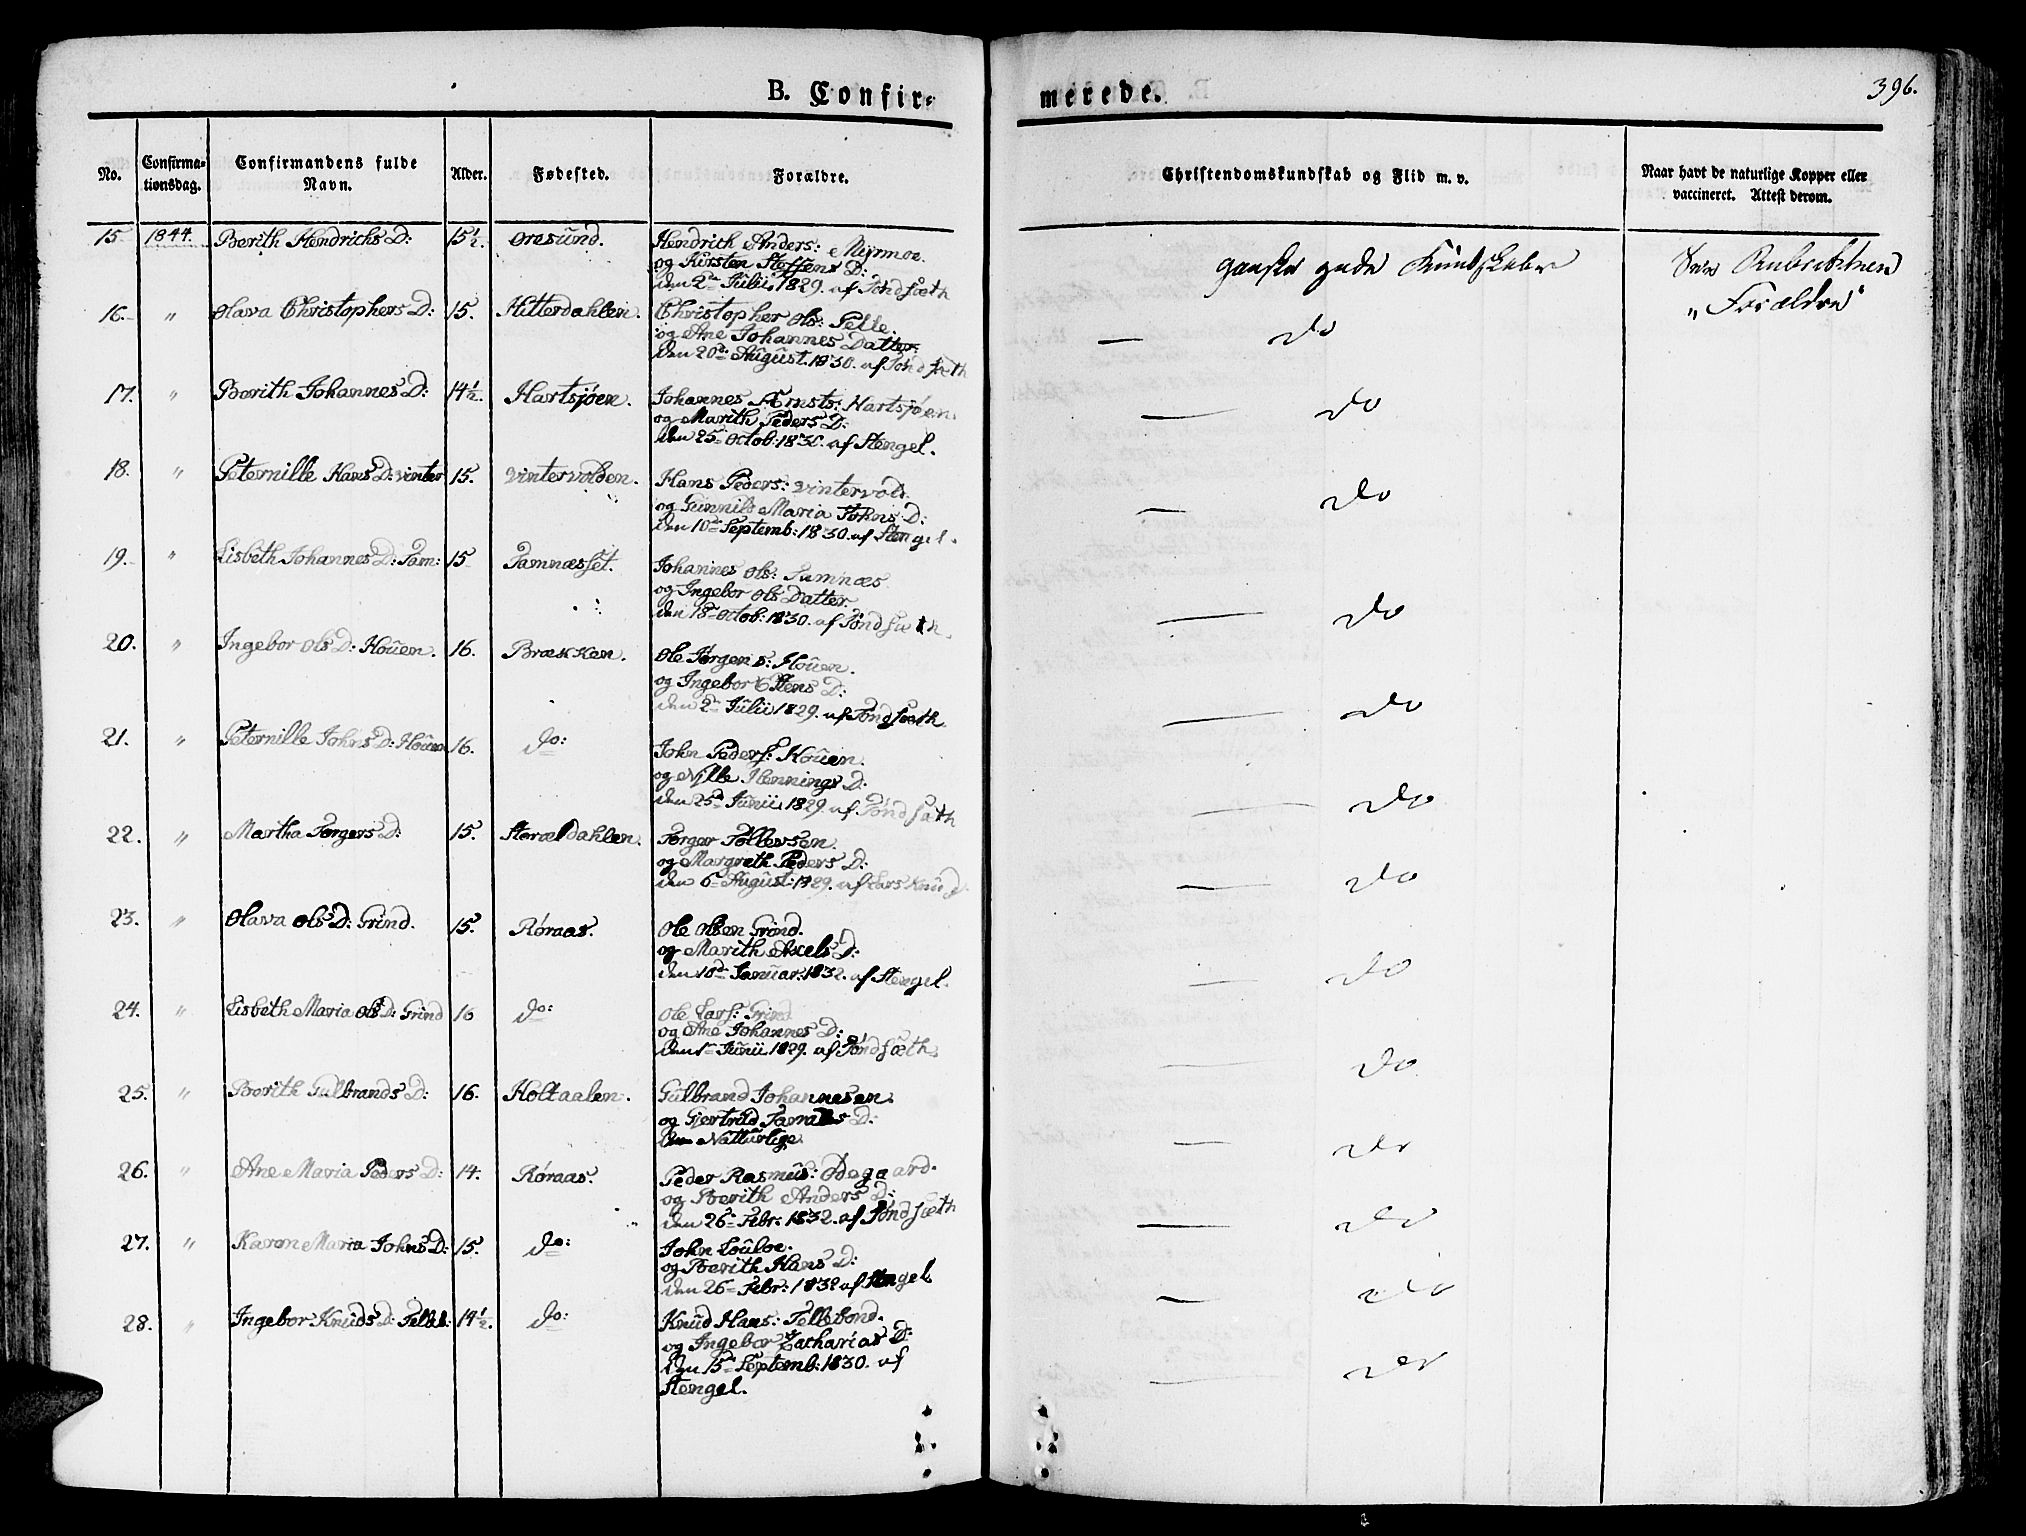 B. Confir-
merede.
396.
No.
Confirma-
tionsdag.
Confirmandens fulde
Navn.
Alder.
Fødested.
Forældre.
Christendomskundskab og Flid m. v.
Naar havt de naturlige Kopper eller
vaccineret. Attest derom.
15 1844. Berith Hendrichs D: 15½. Oresund. Hendrich Anders: Myrmoe.
og Kirsten Steffens D:
den 2d Julii 1829. af Tønd sæth
ganske gode Kundskaber
Rubrikken
"Forældre"
16. " Olava Christophers D: 15. Hitterdahlen. Christopher Ols: Pelle.
og Ane Johannes Datter.
den 20d August. 1830. af Tønd sæth
— do
17. " Berith Johannes D: 14½. Hartsjøen. Johannes Ernsts: Hartsjøen.
og Marith Peders D:
den 25d Octob: 1830. af Stengel.
— do
18. " Peternille Hans D: Vinter 15. Vintervolden. Hans Peders: Vintervold.
og Gunnild Maria Johns D:
den 10d Septemb: 1830. af Stengel.
— do
19. " Lisbeth Johannes D: Tam: 15 Tamnæsset. Johannes Ols: Tamnæs
og Ingebor Ols Datter.
den 18d Octob: 1830. af Tønd sæth.
— do
20. " Ingebor Ols D: Houen. 16. Brækken. Ole Jørgens: Houen.
og Ingebor Stens D:
den 2d Julii 1829. af Tønd sæth
— do
21. " Peternille Johns D: Houen 16. do: John Peders: Houen.
og Nille Hennings D:
den 25d Junii 1829. af Tønd sæth
— do
22. " Martha Torgers D: 15. Storældahlen. Torger Tollevsen.
og Margreth Peders D:
den 6d August: 1829. af Lars Knud
— do
23. " Olava Ols D: Grind. 15. Røraas. Ole Olsen Grind.
og Marith Axels D:
den 10d Januar: 1832. af Stengel.
— do
24. " Lisbeth Maria Ols D: Grind 16 do: Ole Lars: Grind
og Ane Johannes D:
den 1d Junii 1829. af Tønd sæth.
— do
25. " Berith Gulbrands D: 16. Holtaalen. Gulbrand Johannesen.
og Gjertrud D:
den Natturlige.
— do
26. " Ane Maria Peders D: 14. Røraas. Peder Rasmus: Ødegaard.
og Berith Anders D:
den 26d Febr: 1832. af Tønd sæth
— do
27. " Karen Maria Johns D: 15. do: John Louloe.
og Berith Hans D:
den 26d Febr: 1832 af Stengel
— do
28. " Ingebor Knuds D: Telleb: 14½. do: Knud Hans: Tellebond.
og Ingebor Zacharias D:
den 15d Septemb: 1830. af
Stengel.
— do